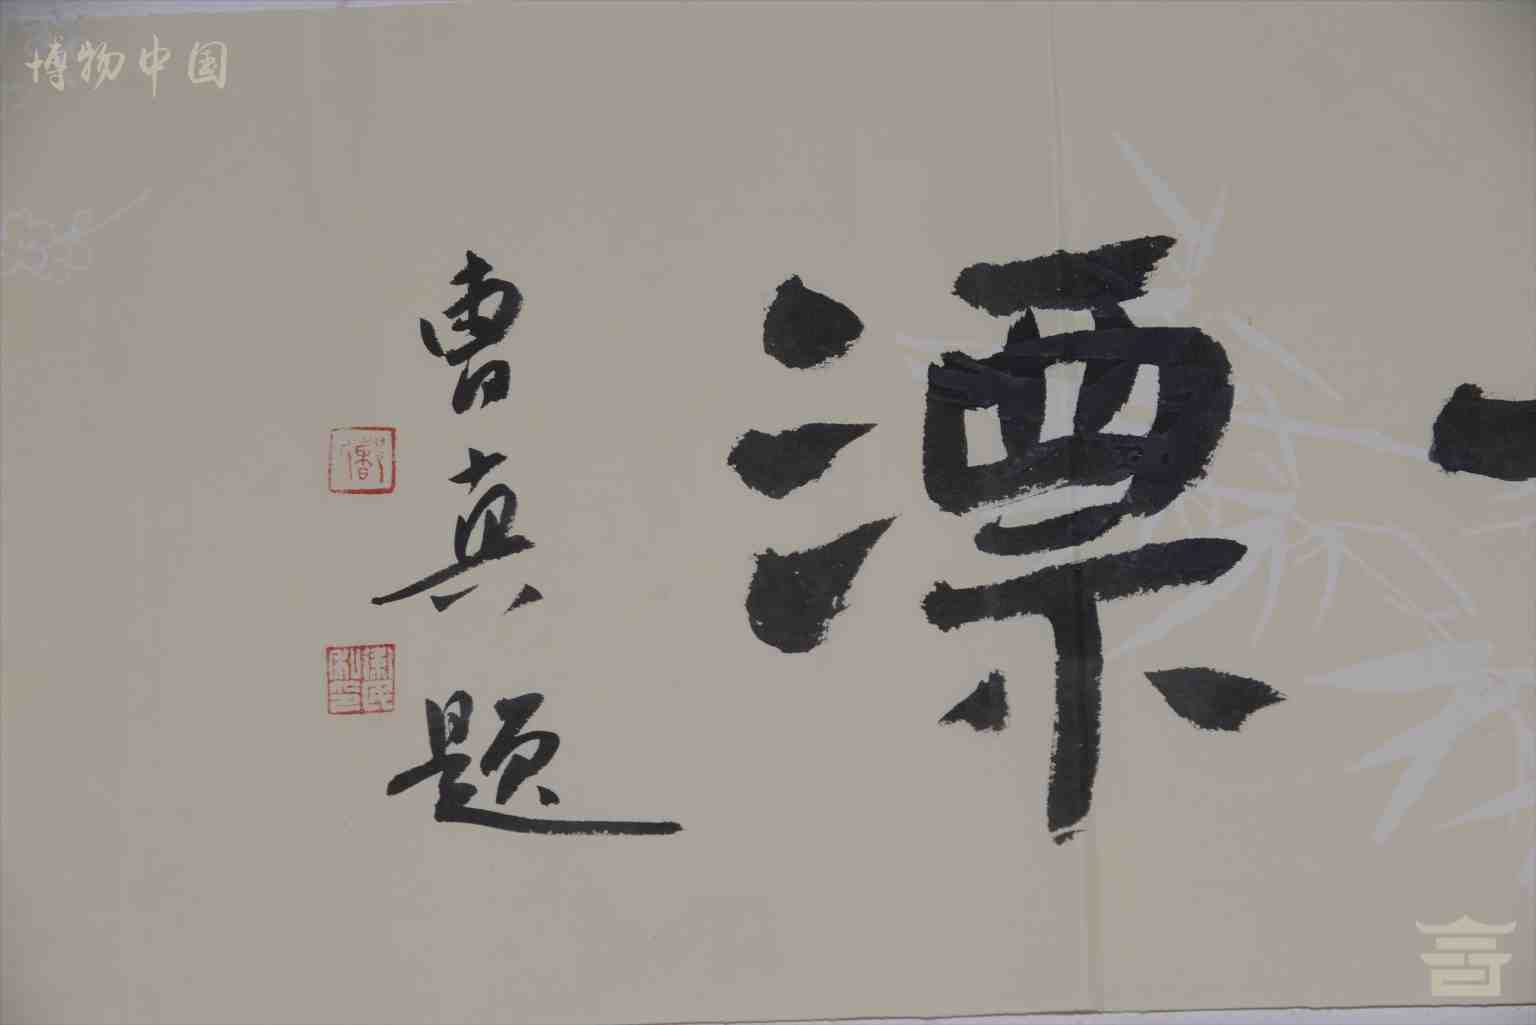 博物中国
漂
曹真題